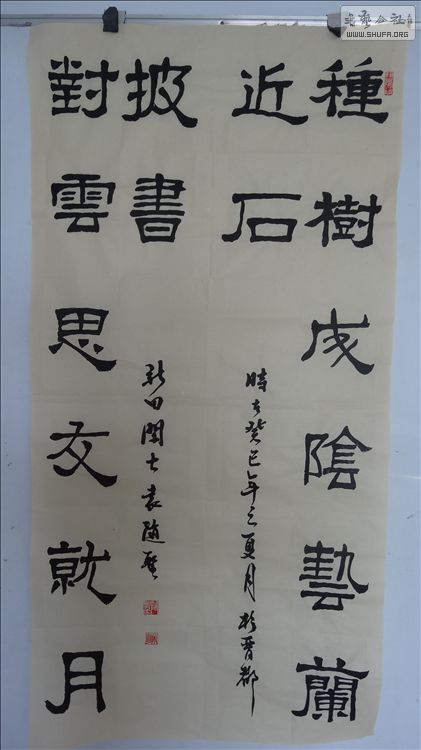 種樹成陰藝蘭
近石
時在癸巳年之夏月於晋都
對雲思友就月
披書
新田閑士袁隨
書藝公社
WWW.SHUFA.ORG